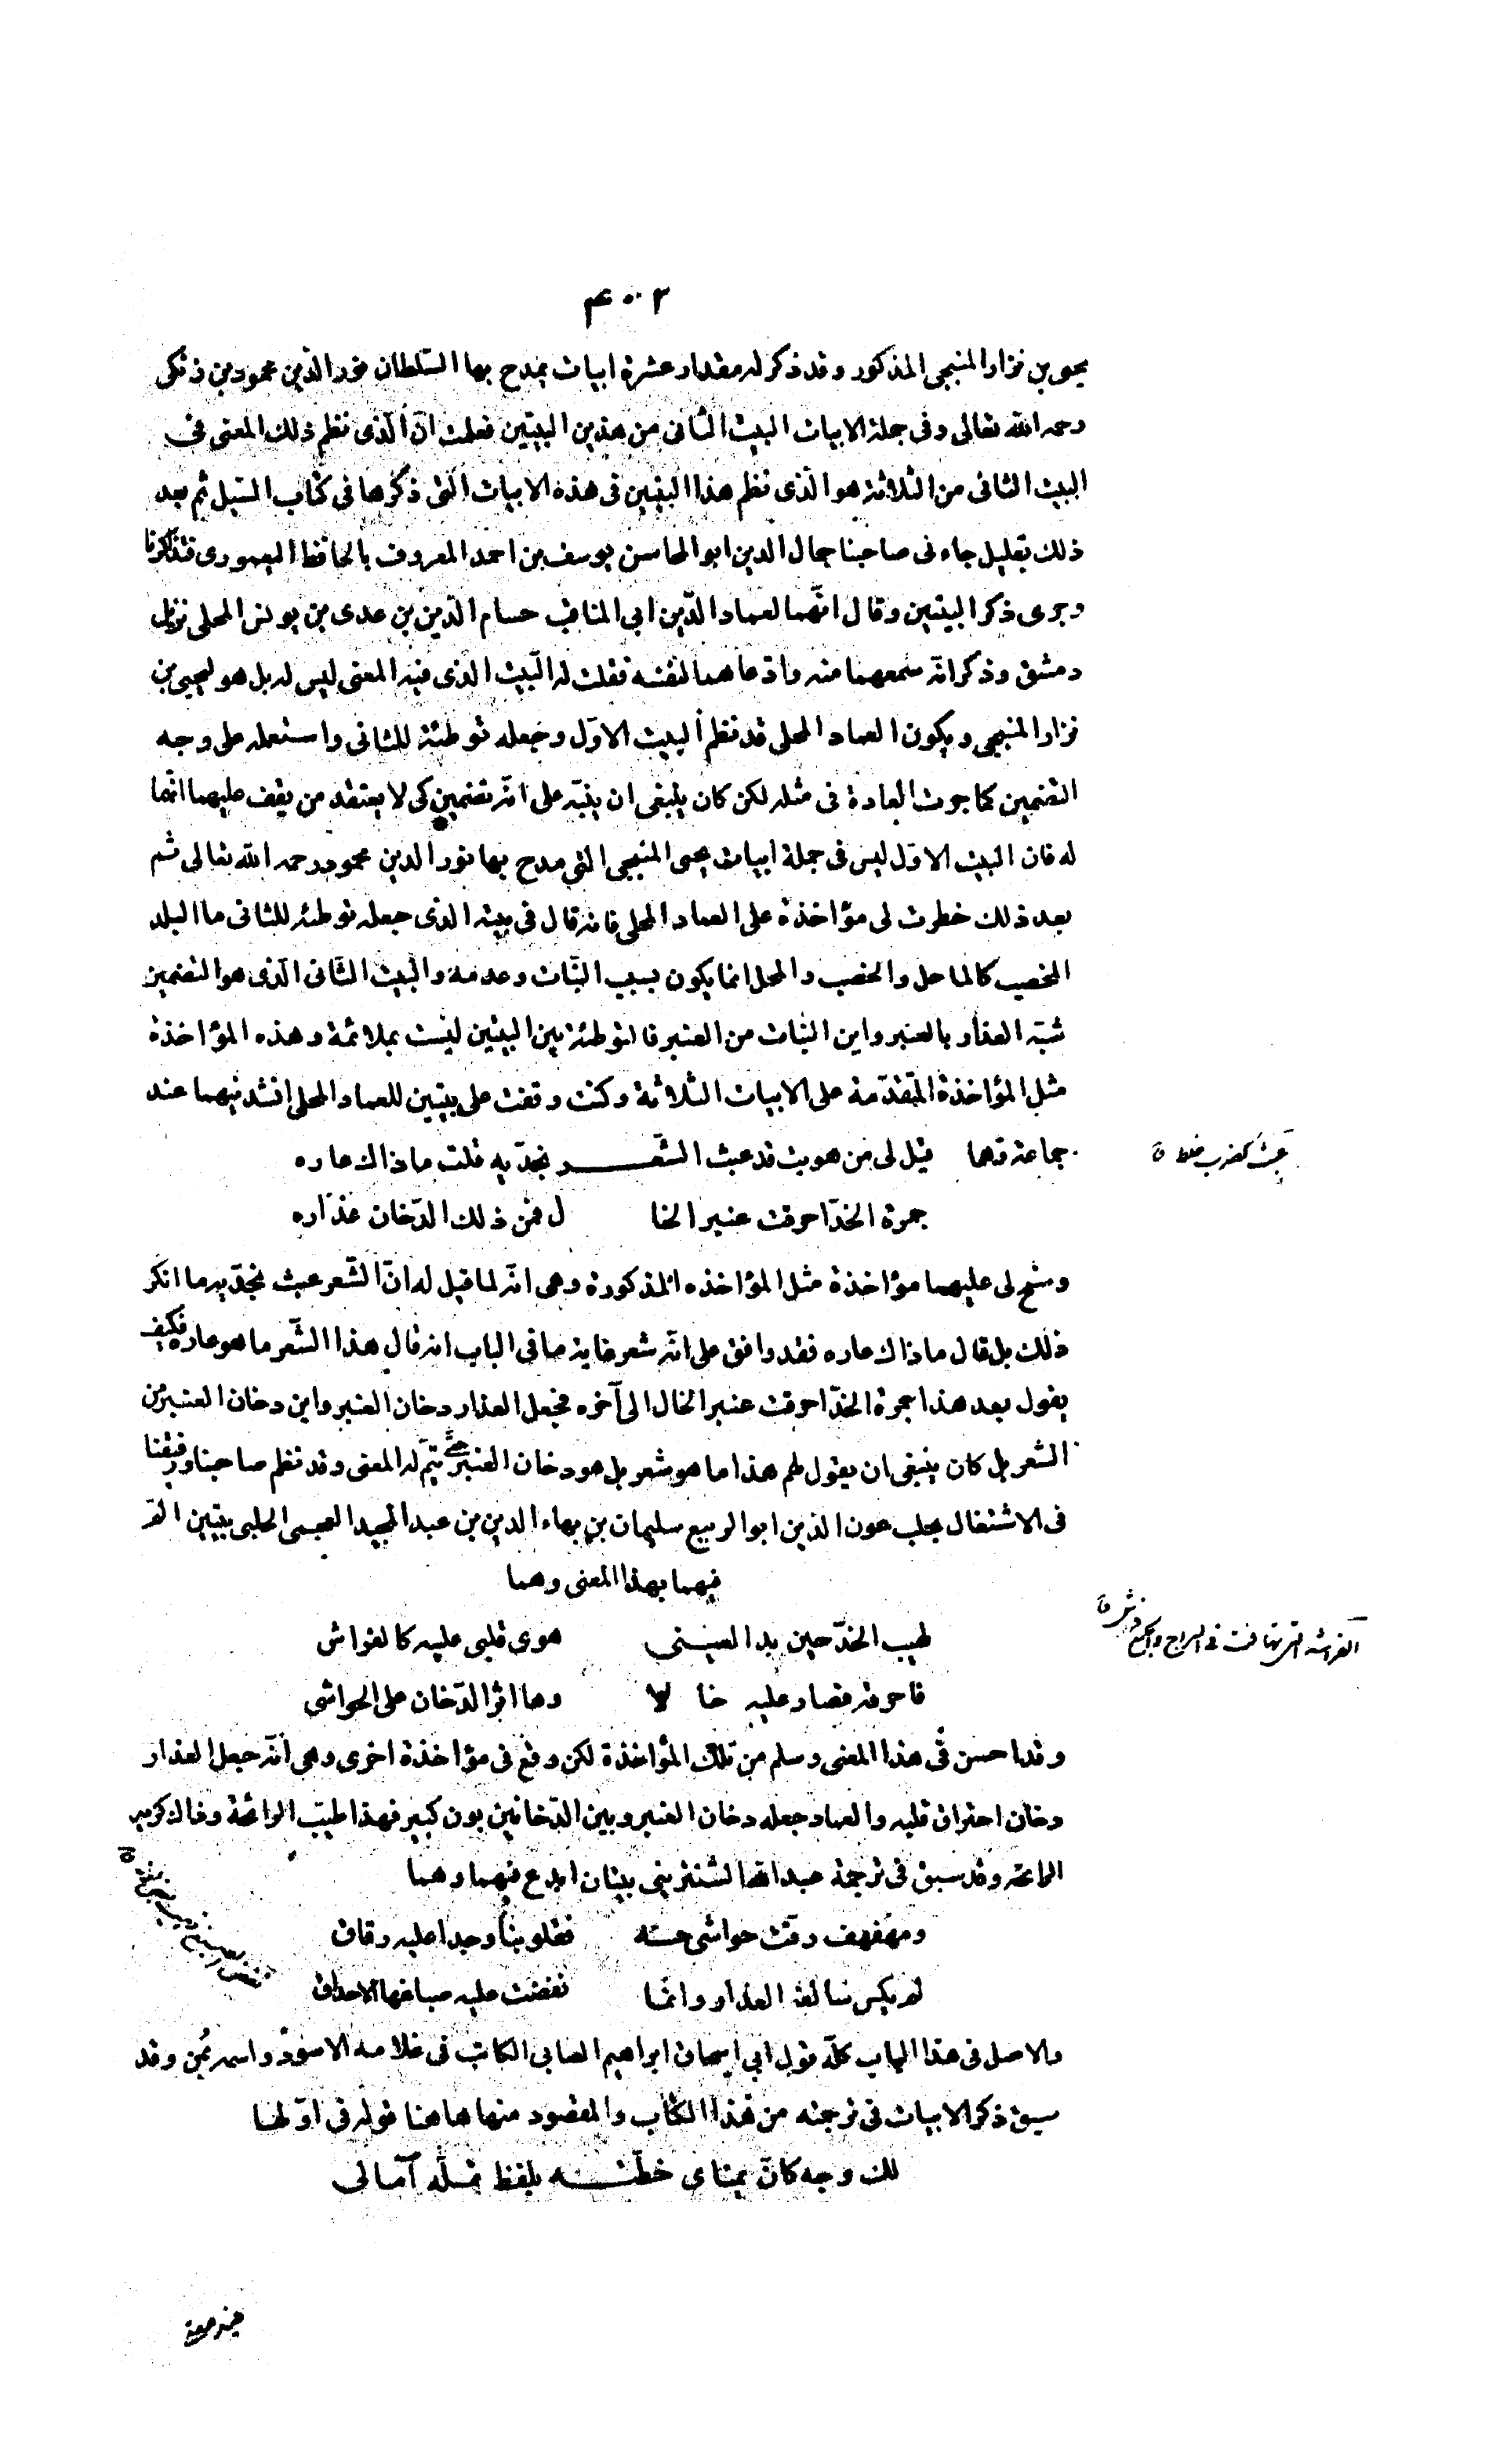 ٤٠٢
يحيى بن نزار المنبجى المذكور وقد ذكر له مقدار عشرة ابيات يمدح بها السّلطان نور الدّين محمود بن زنكى
رحمه الله تعالى وفى جملة الابيات البيت الثانى من هذين البيتين فعلمت انّ الّذى نظم ذلك المعنى فى
البيت الثانى من الثلاثة هو الّذى نظم هذا البيتين فى هذه الابيات الّتى ذكرها فى كتاب السّيل ثم بعد
ذلك بقليل جاءنى صاحبنا جمال الدين ابو المحاسن يوسف بن احمد المعروف بالحافظ اليغمورى فتذاكرنا
وجرى ذكر البيتين وقال انّهما لعماد الدّين ابى المناقب حسام الدّين بن عدى بن يونس المحلى نزيل
دمشق وذكر انّه سمعهما منه وادّعاهما لنفسه فقلت له البّيت الذى فيه المعنى ليس له بل هو ليحيى بن
نزار المنبجى ويكون العماد المحلى قد نظم البيت الاوّل وجعله توطئة للثانى واستعمله على وجه
التضمين كما جرت العادة فى مثله لكن كان ينبغى ان ينبّه على انّه تضمين كى لا يعتقد من يقف عليهما انّهما
له فان البيت الاوّل ليس فى جملة ابيات يحيى المنبجى التى مدح بها نور الدين محمود رحمه الله تعالى ثم
بعد ذلك خطرت لى مؤاخذة على العماد المحلى فانه قال فى بيته الذى جعله توطئه للثانى ما البلد
المخصب كالماحل والخصب والمحل انما يكون بسبب النّبات وعدمه والبيت الثّانى الّذى هو التضمين
شبّه العذار بالعنبر واين النبات من العنبر فالتوطئة بين البيتين ليست بملائمة وهذه المؤاخذة
مثل المؤاخذة المتقدّمة على الابيات الثلاثة وكنت وقفت على بيتين للعماد المحلى انشدنيهما عند
جماعة وهما قيل لى من هويت قد عبث الشّعـــر بخدّيه قلت ما ذاك عاره
عبث كضرب خلط ق
جمرة الخدّ احرقت عنبر الخا ل فمن ذلك الدّخان عذاره
وسنح لى عليهما مؤاخذة مثل المؤاخذه المذكورة وهى انّه لما قيل له انّ الشّعر عبث بخدّيه ما انكر
ذلك بل قال ما ذاك عاره فقد وافق على انّه شعر غاية ما فى الباب انه قال هذا الشّعر ما هو عاره فكيف
يقول بعد هذا جمرة الخدّ احرقت عنبر الخال الى آخره فجعل العذار دخان العنبر واين دخان العنبر من
الشعر بل كان ينبغى ان يقول لهم هذا ما هو شعر بل هو دخان العنبر حتّى يتمّ له المعنى وقد نظم صاحبنا ورفيقنا
فى الاشتغال بحلب عون الدّين ابو الربيع سليمان بن بهاء الدين بن عبد المجيد العجمى الحلبى بيتين المّ
فيهما بهذا المعنى وهما
لهيب الخدّ حين بدا لعينى هوى قلبى عليه كالفراش
الفراشه التى تهافت فى السراج والجمع فراش ق
فاحرقه فصار عليه خا لا وها اثر الدّخان على الحواشى
وقد احسن فى هذا المعنى وسلم من تلك المؤاخذة لكن وقع فى مؤاخذة اخرى وهى انّه جعل العذار
دخان احتراق قلبه والعماد جعله دخان العنبر وبين الدّخانين بون كبير فهذا طيب الرائحة وذاك كريه
الرائحة وقد سبق فى ترجمة عبد الله الشنترينى بيتان ابدع فيهما وهما
ومهفهف رقّت حواشى حسنه فقلوبنا وجدا عليه رقاق
لم يكس سالفه العذار وانما نفضت عليه صباغها الاحداق
والاصل فى هذا الباب كلّه قول ابى اسحاق ابراهيم الصابى الكاتب فى غلامه الاسود واسمه يُمن وقد
سبق ذكر الابيات فى ترجمته من هذا الكتاب والمقصود منها هاهنا قوله فى اوّلها
لك وجه كانّ يمناى خطّتـــه بلفظ تملّه آمالى